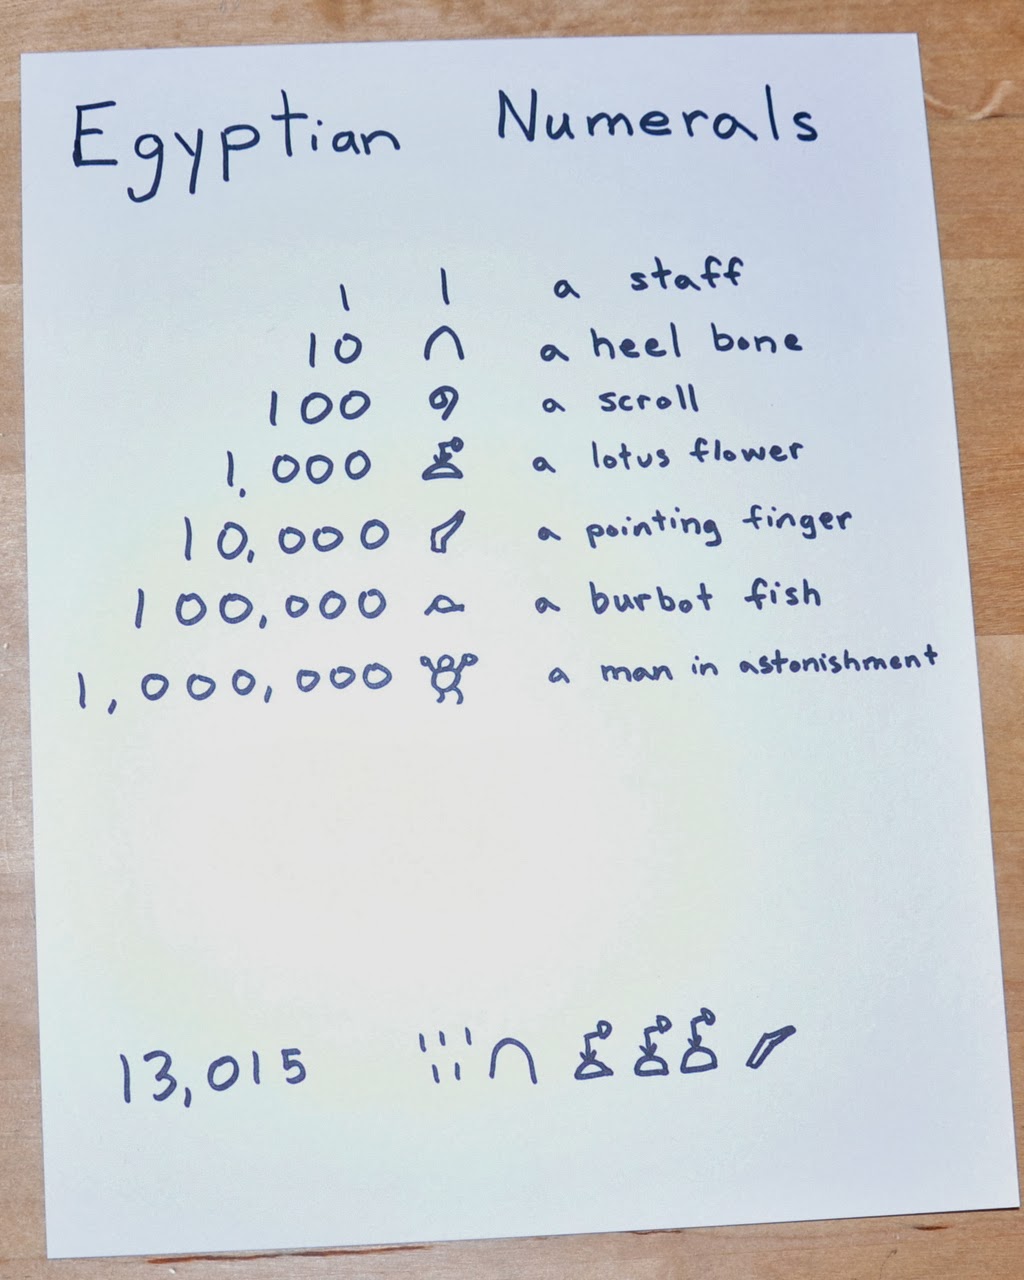 Egyptian Numerals
1 𓏺 a staff
10 𓎆 a heel bone
100 𓍢 a scroll
1,000 𓆼 a lotus flower
10,000 𓂭 a pointing finger
100,000 𓆐 a burbot fish
1,000,000 𓁨 a man in astonishment
13,015 𓏾𓎆𓆼𓆼𓆼𓂭